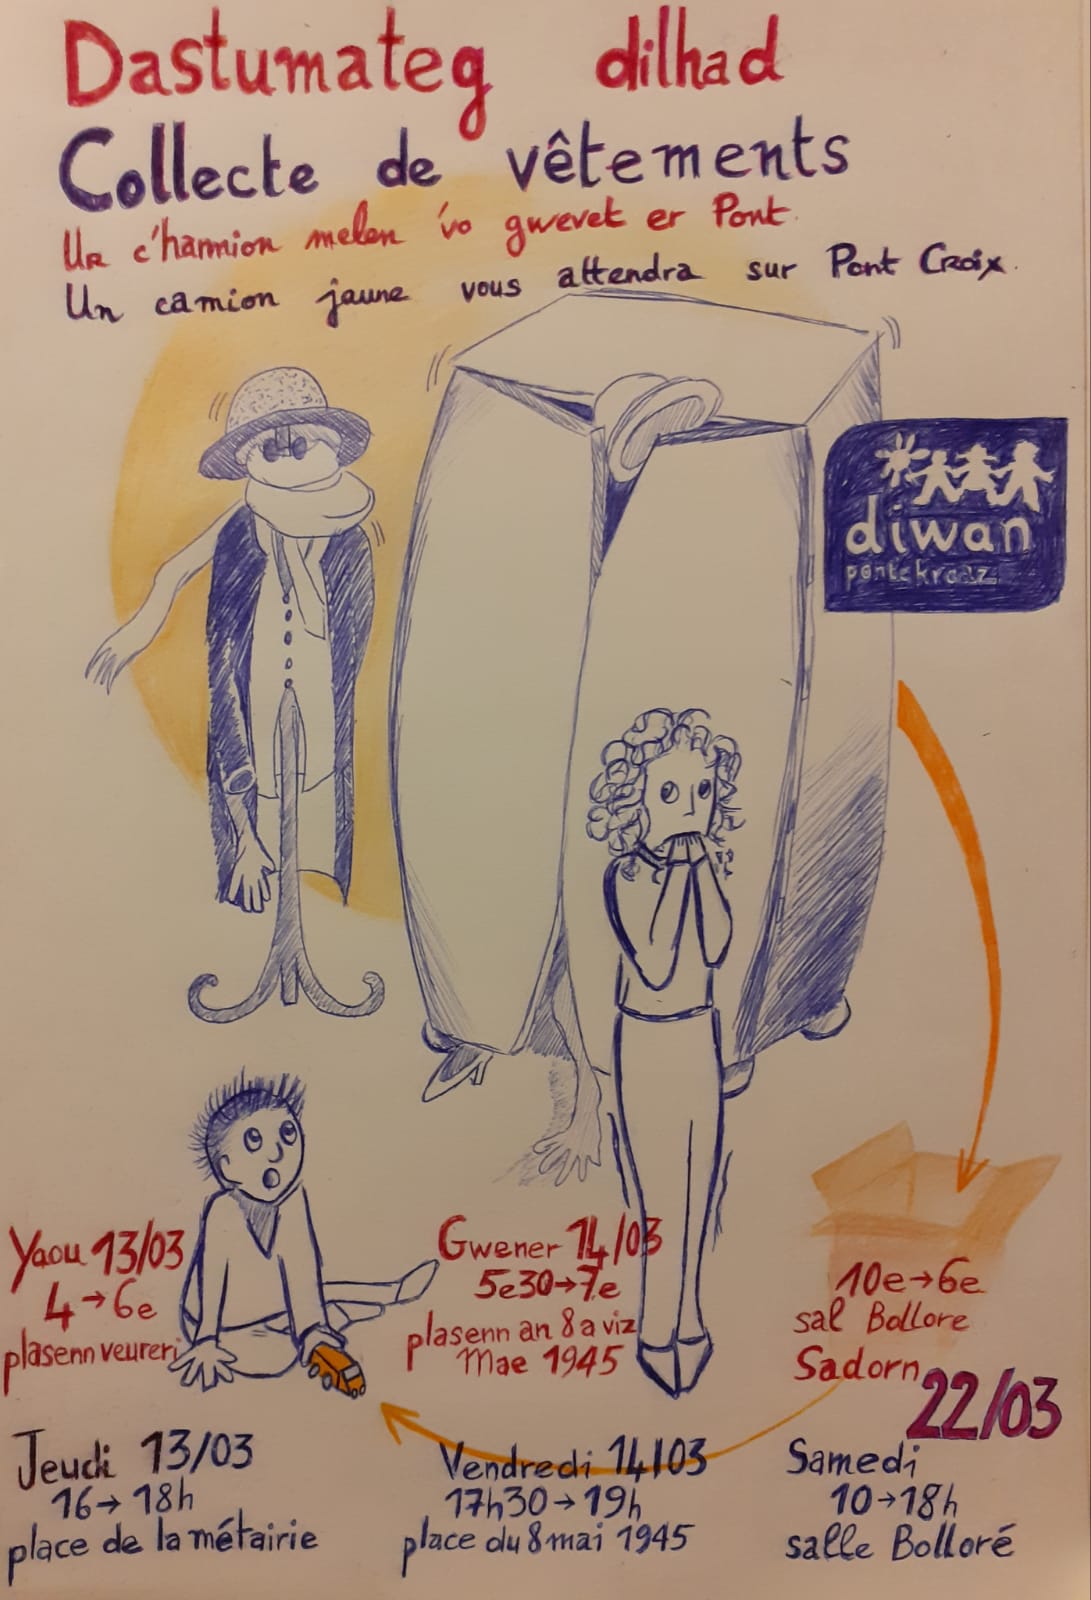 Dastumateg dilhad
Collecte de vêtements
Un c'hamion melen 'vo gwevet er Pont.
Un camion jaune vous attendra sur Pont Croix.
diwan
pontekroaz
Yaou 13/03
4→6e
plasenn veureri
Gwener 14/03
5e30→7e
plasenn an 8 a viz
Mae 1945
10e→6e
sal Bollore
Sadorn
22/03
Jeudi 13/03
16→18h
place de la métairie
Vendredi 14/03
17h30→19h
place du 8 mai 1945
Samedi
10→18h
salle Bolloré